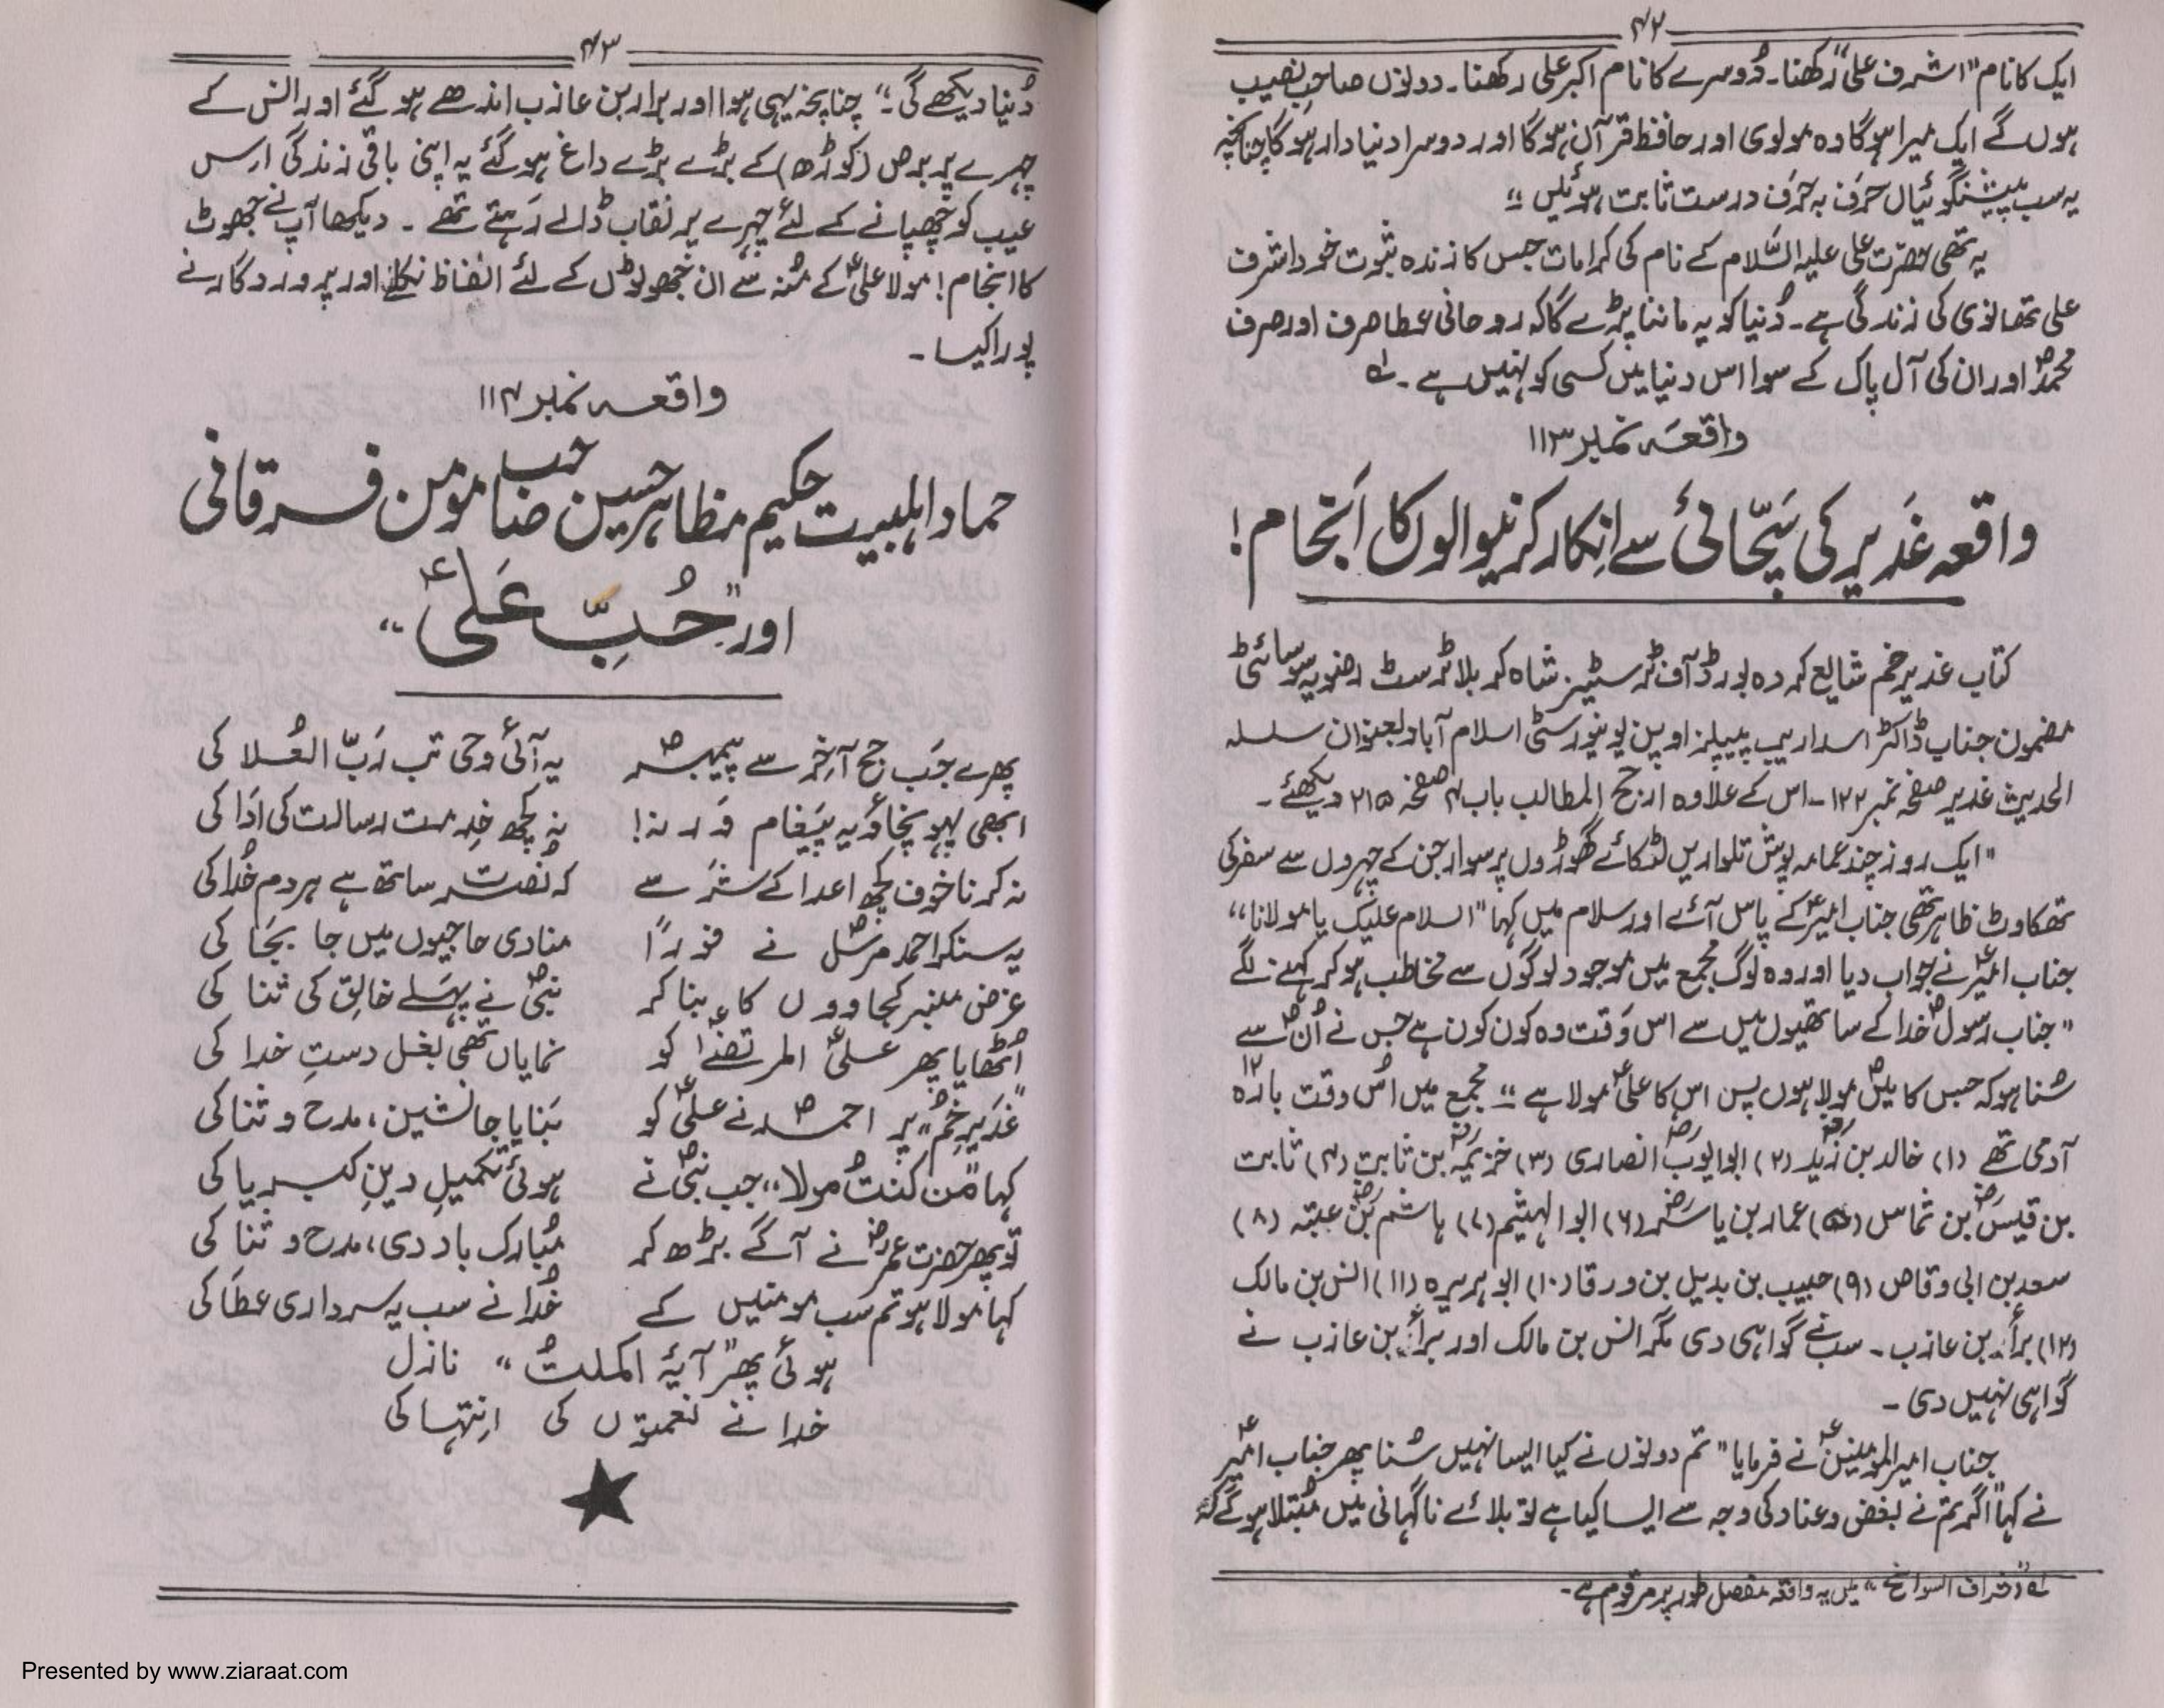 ۴۲
ایک کا نام "اشرف علی" رکھنا۔ دُوسرے کا نام اکبر علی رکھنا۔ دونوں صاحبِ نصیب
ہوں گے ایک میرا ہوگا وہ مولوی اور حافظ قرآن ہوگا اور دوسرا دنیا دار ہوگا چنانچہ
یہ سب پیشنگوئیاں حَرف بہ حَرف درست ثابت ہوئیں"
یہ تھی حضرت علی علیہ السَّلام کے نام کی کرامات جس کا زندہ ثبوت خود اشرف
علی تھانوی کی زندگی ہے۔ دُنیا کو یہ ماننا پڑے گا کہ روحانی عطا صرف اور صرف
محمدؐ اور ان کی آل پاک کے سوا اس دنیا میں کسی کو نہیں ہے۔ لہ
واقعہ نمبر ۱۱۳
واقعہ غَدیر کی سَچّائی سے اِنکار کرنیوالوں کا اَنجام!
کتاب غدیر خم شایع کردہ بورڈ آف ٹرسٹیز شاہ کربلا ٹرسٹ رضویہ سوسائٹی
مضمون جناب ڈاکٹر اسد اریب پیپلز اوپن یونیورسٹی اسلام آباد بعنوان سلسلہ
الحدیث غدیر صفحہ نمبر ۱۲۲۔ اس کے علاوہ ارجح المطالب باب ۴ صفحہ ۲۱۵ دیکھئے۔
"ایک روز چند عمامہ پوش تلواریں لٹکائے گھوڑوں پر سوار جن کے چہروں سے سفر کی
تھکاوٹ ظاہر تھی جناب امیرؑ کے پاس آئے اور سلام میں کہا "السلام علیک یا مولانا"
جناب امیرؑ نے جواب دیا اور وہ لوگ مجمع میں موجود لوگوں سے مخاطب ہو کر کہنے لگے
"جناب رسولؐ خدا کے ساتھیوں میں سے اس وَقت وہ کون کون ہے جس نے اُنؐ سے
سُنا ہو کہ جس کا میںؐ مولا ہوں پس اس کا علیؑ مولا ہے" مجمع میں اُس وقت بارہ ۱۲
آدمی تھے (۱) خالد بن زیدؓ (۲) ابو ایوبؓ انصاری (۳) خزیمہؓ بن ثابت (۴) ثابت
بن قیسؓ بن شماس (۵) عمار بن یاسرؓ (۶) ابو الہیثم (۷) ہاشمؓ بن عتبہ (۸)
سعد بن ابی وقاص (۹) حبیب بن بدیل بن ورقا (۱۰) ابو ہریرہ (۱۱) انس بن مالک
(۱۲) برأ بن عازب۔ سب نے گواہی دی مگر انس بن مالک اور برأ بن عازب نے
گواہی نہیں دی۔
جناب امیرالمومنینؑ نے فرمایا "تم دونوں نے کیا ایسا نہیں سُنا پھر جناب امیرؑ
نے کہا "اگر تم نے بغض و عناد کی وجہ سے ایسا کیا ہے تو بلائے ناگہانی میں مُبتلا ہو گے کہ
لہ "اشراف السوانح" میں یہ واقعہ مفصل طور پر مرقوم ہے۔
۴۳
دُنیا دیکھے گی۔" چنانچہ یہی ہوا اور برا بن عازب اندھے ہو گئے اور انس کے
چہرے پر برص (کوڑھ) کے بڑے بڑے داغ ہو گئے یہ اپنی باقی زندگی اس
عیب کو چھپانے کے لئے چہرے پر نقاب ڈالے رَہتے تھے۔ دیکھا آپ نے جھوٹ
کا انجام! مولا علیؑ کے مُنہ سے ان جھوٹوں کے لئے الفاظ نکلے اور پروردگار نے
پورا کیا۔
واقعہ نمبر ۱۱۴
حماد اہلبیت حکیم مظاہر حسین صاحب مومن فرقانی
اور "حُبِّ عَلیؑ"
پھرے جَب حج آخر سے پیمبرؐ یہ آئی وحی تب رَبّ العُلا کی
ابھی پہونچاؤ یہ پَیغام وَرنہ! نہ کچھ خِدمت رسالت کی اَدا کی
نہ کرنا خوف کچھ اعدا کے شَر سے کہ نُصرت ساتھ ہے ہر دم خُدا کی
یہ سنکر احمد مرسلؐ نے فورًا منادی حاجیوں میں جا بجَا کی
غرض منبر کجاووں کا بنا کر نبیؐ نے پہلے خالِق کی ثنا کی
اُٹھایا پھر علیؑ المرتضےٰؑ کو نمایاں تھی بغل دستِ خدا کی
"غَدیرِ خُم" پر احمدؐ نے علیؑ کو بَنایا جانشین، مدح و ثنا کی
کہا "مَن کُنتُ مولا" جب نبیؐ نے ہوئی تکمیلِ دینِ کبریا کی
تو پھر حضرت عمرؓ نے آگے بڑھ کر مُبارک باد دی، مدح و ثنا کی
کہا مولا ہو تم سب مومنیں کے خُدا نے سب پہ سرداری عطَا کی
ہوئی پھر "آیۂ اکملتُ" نازل
خدا نے نعمتوں کی اِنتہا کی
Presented by www.ziaraat.com